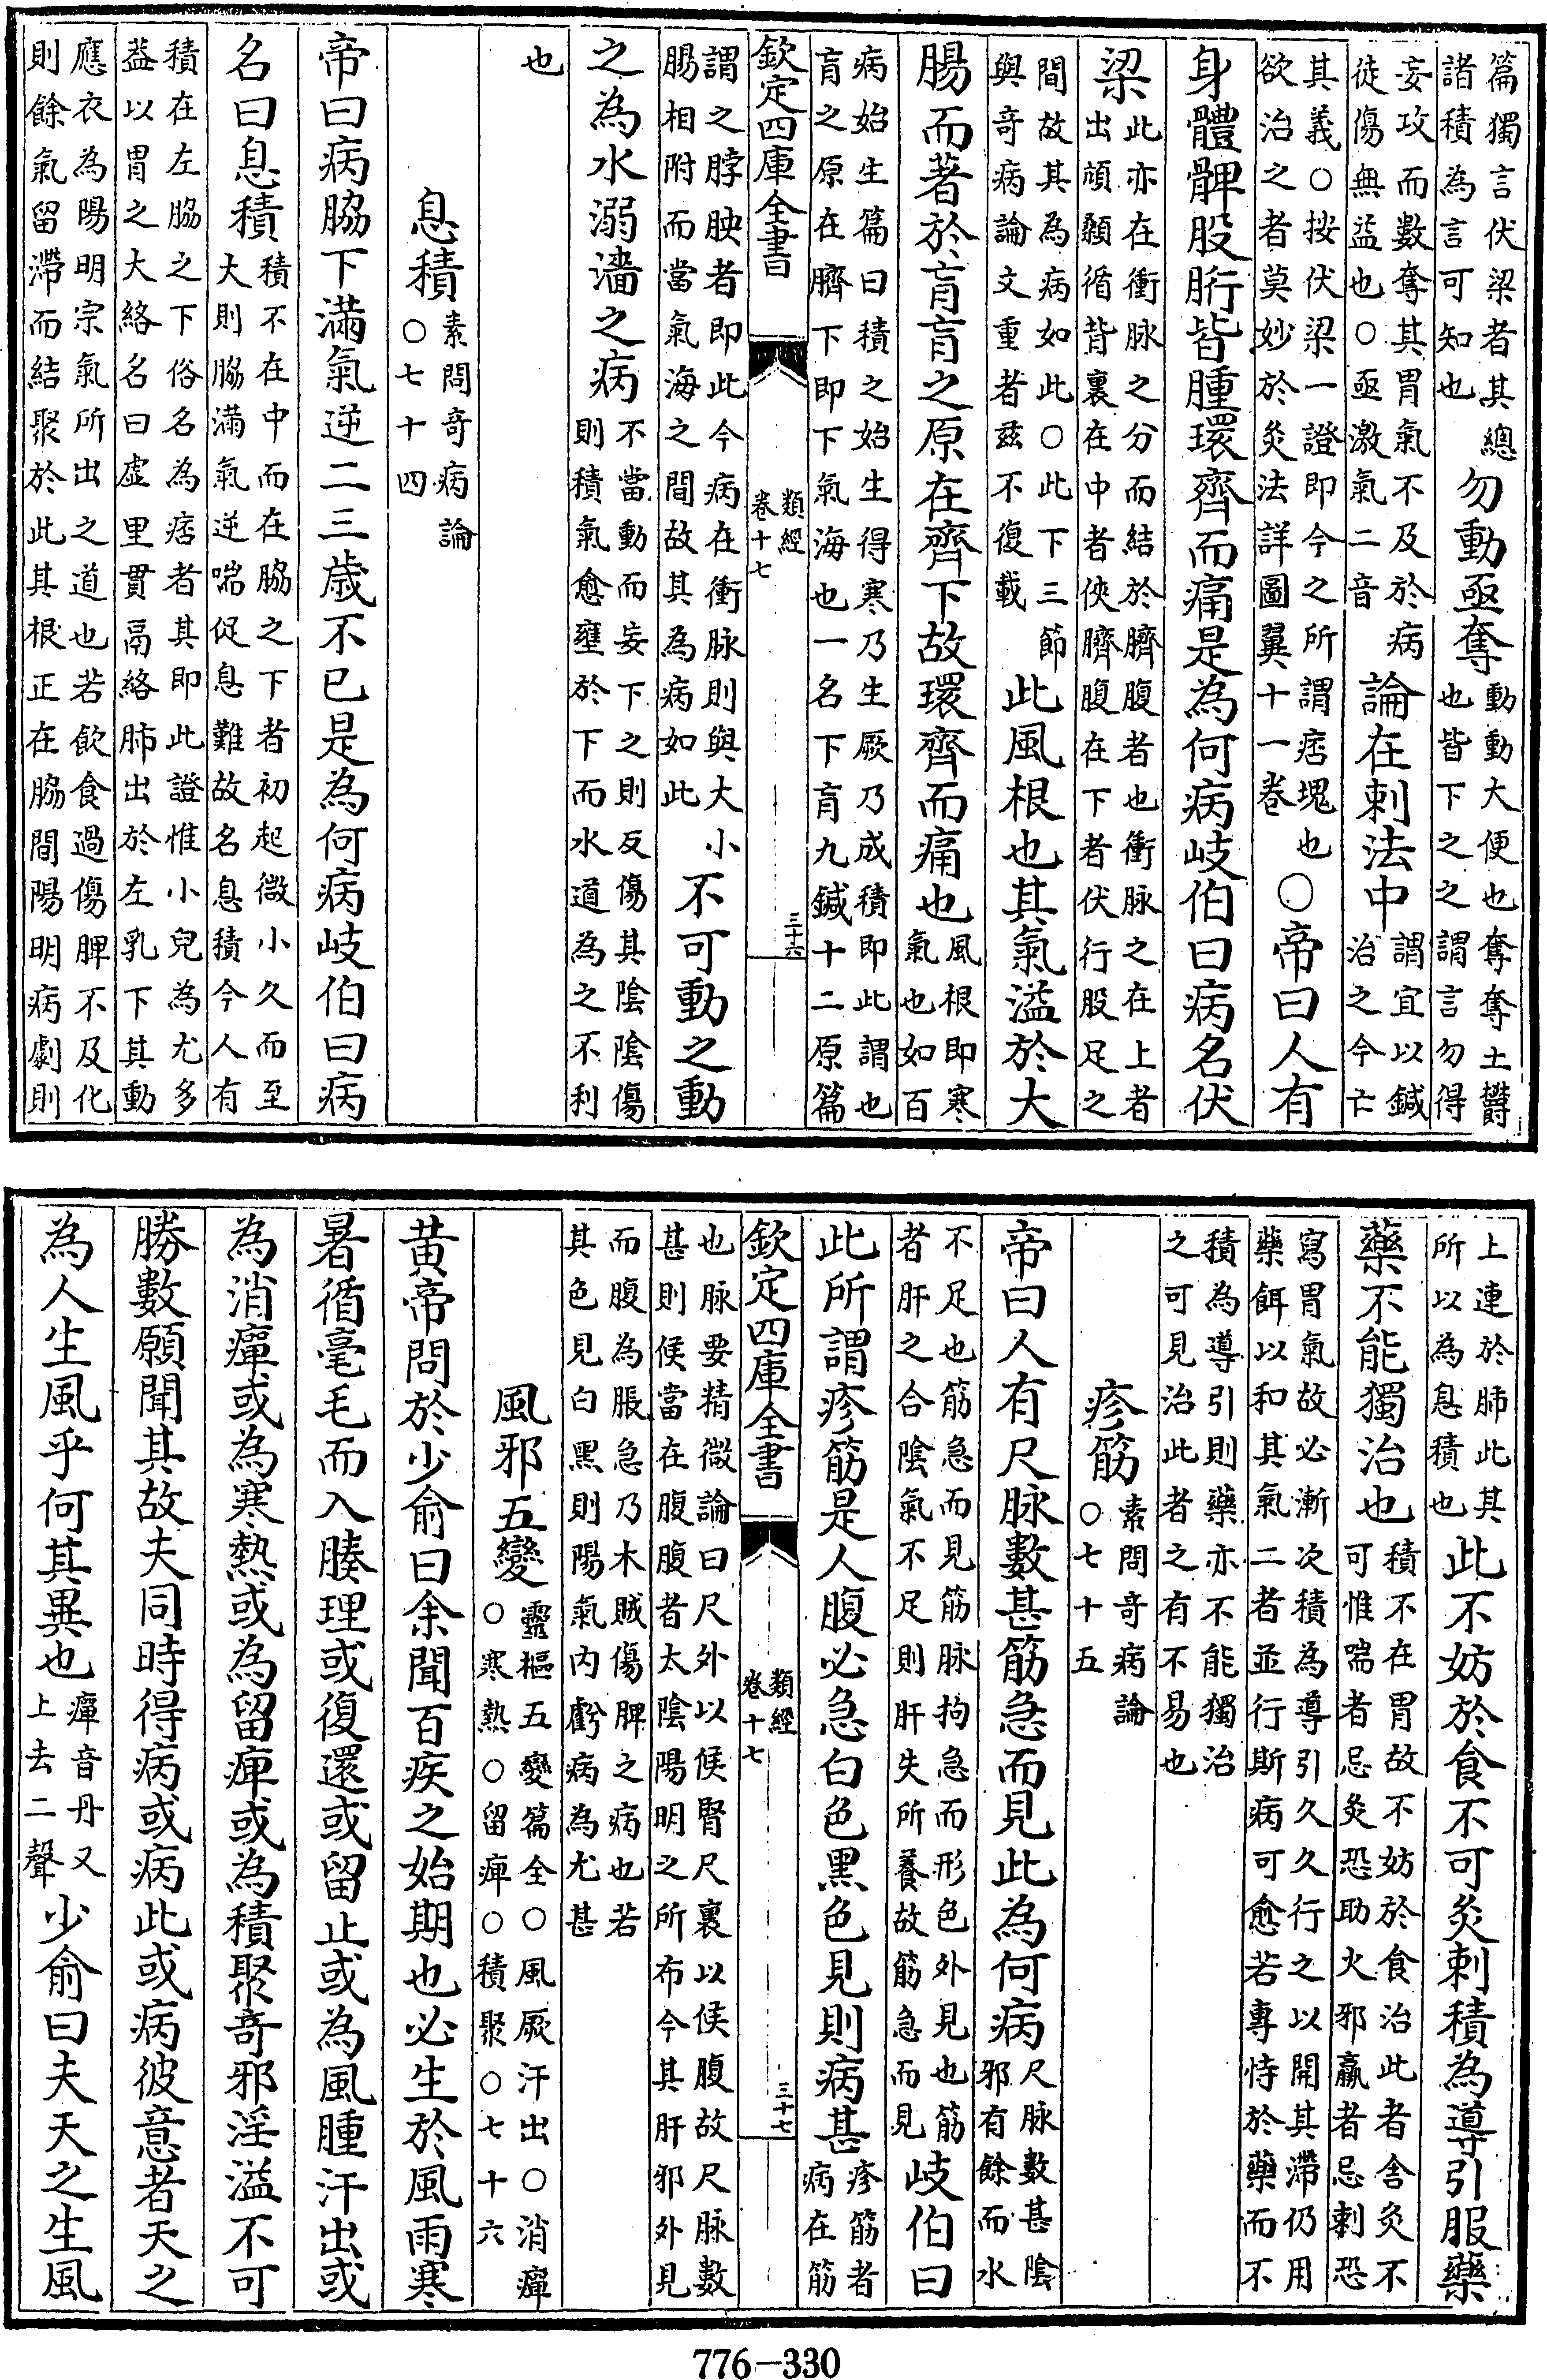 篇獨言伏梁者其總
諸積為言可知也
勿動亟奪
動動大便也奪奪土欝
也皆下之之謂言勿得
妄攻而數奪其胃氣不及於病
徒傷無益也○亟激氣二音
論在刺法中
謂宜以鍼
治之今亡
其義○按伏梁一證即今之所謂痞塊也
欲治之者莫妙於灸法詳圖翼十一卷
○帝曰人有
身體髀股䯒皆腫環齊而痛是為何病岐伯曰病名伏
梁
此亦在衝脉之分而結於臍腹者也衝脉之在上者
出頏顙循背裏在中者俠臍腹在下者伏行股足之
間故其為病如此○此下三節
與奇病論文重者兹不復載
此風根也其氣溢於大
腸而著於肓肓之原在齊下故環齊而痛也
風根即寒
氣也如百
病始生篇曰積之始生得寒乃生厥乃成積即此謂也
肓之原在臍下即下氣海也一名下肓九鍼十二原篇
欽定四庫全書
類經
卷十七
三十六
謂之脖胦者即此今病在衝脉則與大小
腸相附而當氣海之間故其為病如此
不可動之動
之為水溺濇之病
不當動而妄下之則反傷其陰陰傷
則積氣愈壅於下而水道為之不利
也
息積
素問奇病論
○七十四
帝曰病脇下滿氣逆二三歲不已是為何病岐伯曰病
名曰息積
積不在中而在脇之下者初起微小久而至
大則脇滿氣逆喘促息難故名息積今人有
積在左脇之下俗名為痞者其即此證惟小兒為尤多
葢以胃之大絡名曰虛里貫鬲絡肺出於左乳下其動
應衣為陽明宗氣所出之道也若飲食過傷脾不及化
則餘氣留滯而結聚於此其根正在脇間陽明病劇則
上連於肺此其
所以為息積也
此不妨於食不可灸刺積為導引服藥
藥不能獨治也
積不在胃故不妨於食治此者含灸不
可惟喘者忌灸恐助火邪羸者忌刺恐
寫胃氣故必漸次積為導引久久行之以開其滯仍用
藥餌以和其氣二者並行斯病可愈若專恃於藥而不
積為導引則藥亦不能獨治
之可見治此者之有不易也
疹筋
素問奇病論
○七十五
帝曰人有尺脉數甚筋急而見此為何病
尺脉數甚陰
邪有餘而水
不足也筋急而見筋脉拘急而形色外見也筋
者肝之合陰氣不足則肝失所養故筋急而見
岐伯曰
此所謂疹筋是人腹必急白色黑色見則病甚
疹筋者
病在筋
欽定四庫全書
類經
卷十七
三十七
也脉要精微論曰尺外以候腎尺裏以候腹故尺脉數
甚則候當在腹腹者太陰陽明之所布今其肝邪外見
而腹為脹急乃木賊傷脾之病也若
其色見白黑則陽氣内虧病為尤甚
風邪五變
靈樞五變篇全○風厥汗出○消癉
○寒熱○留痺○積聚○七十六
黃帝問於少俞曰余聞百疾之始期也必生於風雨寒
暑循毫毛而入腠理或復還或留止或為風腫汗出或
為消癉或為寒熱或為留痺或為積聚奇邪淫溢不可
勝數願聞其故夫同時得病或病此或病彼意者天之
為人生風乎何其異也
癉音丹又
上去二聲
少俞曰夫天之生風
776-330